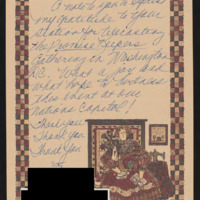 note to you to express
my gratitude to your
station for telecasting
the Promise Keepers
Gathering in Washington
D.C. What a joy and
what hope to witness
this event at our
nations Capitol!
Thank you
Thank you
Thank You